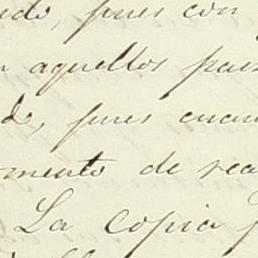 ido, pues con
aquellos país
do, pues cuan
mento de rea
La copia